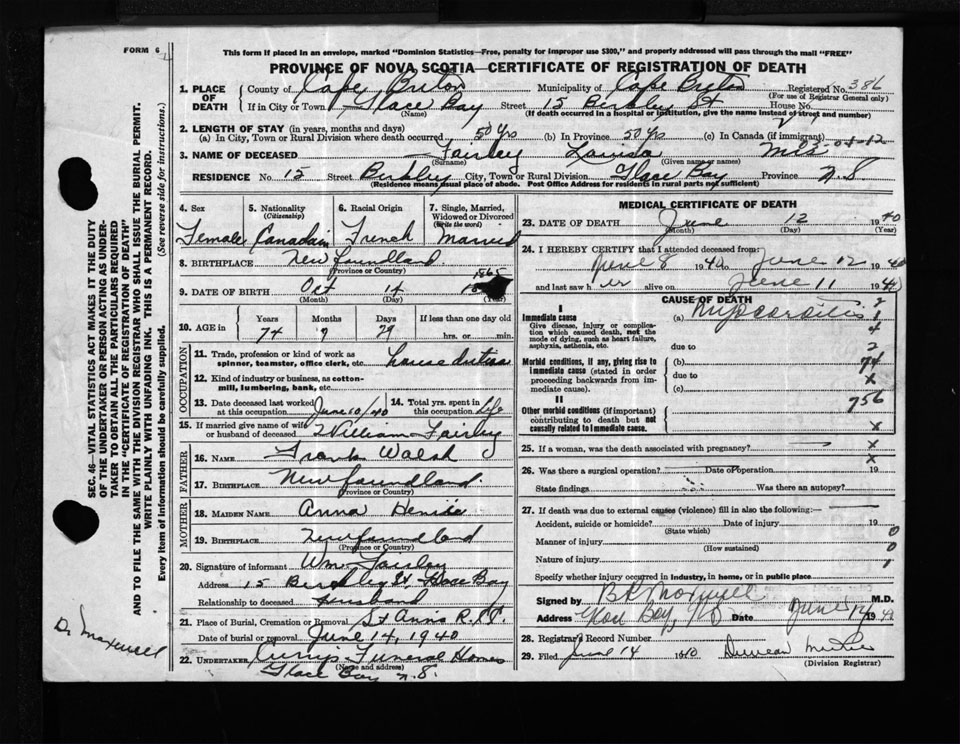 FORM 6
This form if placed in an envelope, marked "Dominion Statistics—Free, penalty for improper use $300," and properly addressed will pass through the mail "FREE"
PROVINCE OF NOVA SCOTIA—CERTIFICATE OF REGISTRATION OF DEATH
Registered No. 386
(For use of Registrar General only)
1. PLACE OF DEATH County of Cape Breton Municipality of Cape Breton
If in City or Town Glace Bay Street 15 Berkley St House No.
(Name) (If death occurred in a hospital or institution, give the name instead of street and number)
2. LENGTH OF STAY (in years, months and days)
(a) In City, Town or Rural Division where death occurred 50 yrs (b) In Province 50 yrs (c) In Canada (if immigrant)
3. NAME OF DECEASED Fairley Louisa Mrs
(Surname) (Given name or names)
RESIDENCE No. 15 Street Berkley City, Town or Rural Division Glace Bay Province N.S
(Residence means usual place of abode. Post Office Address for residents in rural parts not sufficient)
4. Sex 5. Nationality (Citizenship) 6. Racial Origin 7. Single, Married, Widowed or Divorced (Write the word)
Female Canadian French Married
8. BIRTHPLACE Newfoundland
(Province or Country)
9. DATE OF BIRTH Oct 14 1865
(Month) (Day) (Year)
10. AGE in Years Months Days If less than one day old
74 7 29 hrs. or min.
OCCUPATION
11. Trade, profession or kind of work as spinner, teamster, office clerk, etc. house duties
12. Kind of industry or business, as cotton-mill, lumbering, bank, etc.
13. Date deceased last worked at this occupation June 10/40 14. Total yrs. spent in this occupation Life
15. If married give name of wife or husband of deceased William Fairley
FATHER
16. NAME Frank Walsh
17. BIRTHPLACE Newfoundland
(Province or Country)
MOTHER
18. MAIDEN NAME Anna
19. BIRTHPLACE Newfoundland
(Province or Country)
20. Signature of informant Wm Fairley
Address 15 Berkley St Glace Bay
Relationship to deceased Husband
21. Place of Burial, Cremation or Removal St Anns
Date of burial or removal June 14, 1940
22. UNDERTAKER Currys Funeral Home
(Name and address)
Glace Bay N.S.
MEDICAL CERTIFICATE OF DEATH
23. DATE OF DEATH June 12 1940
(Month) (Day) (Year)
24. I HEREBY CERTIFY that I attended deceased from:
June 8 1940 to June 12 1940
and last saw her alive on June 11 1940
CAUSE OF DEATH
I
Immediate cause (a) Myocarditis
Give disease, injury or complication which caused death, not the mode of dying, such as heart failure, asphyxia, asthenia, etc.
due to
Morbid conditions, if any, giving rise to immediate cause (stated in order proceeding backwards from immediate cause).
(b)
due to
(c)
74
x
756
II
Other morbid conditions (if important) contributing to death but not causally related to immediate cause.
x
25. If a woman, was the death associated with pregnancy? x
26. Was there a surgical operation? Date of operation 19
State findings Was there an autopsy? x
27. If death was due to external causes (violence) fill in also the following:—
Accident, suicide or homicide? Date of injury 19 0
(State which)
Manner of injury 0
(How sustained)
Nature of injury 1
Specify whether injury occurred in industry, in home, or in public place
Signed by M.D.
Address Glace Bay, NS Date June 1940
28. Registrar's Record Number
29. Filed June 14 1940 Duncan
(Division Registrar)
SEC. 46—VITAL STATISTICS ACT MAKES IT THE DUTY
OF THE UNDERTAKER OR PERSON ACTING AS UNDERTAKER
TO OBTAIN ALL THE PARTICULARS REQUIRED
IN THE "CERTIFICATE OF REGISTRATION OF DEATH"
AND TO FILE THE SAME WITH THE DIVISION REGISTRAR WHO SHALL ISSUE THE BURIAL PERMIT.
WRITE PLAINLY WITH UNFADING INK. THIS IS A PERMANENT RECORD.
Every item of information should be carefully supplied. (See reverse side for instructions.)
Dr Maxwell